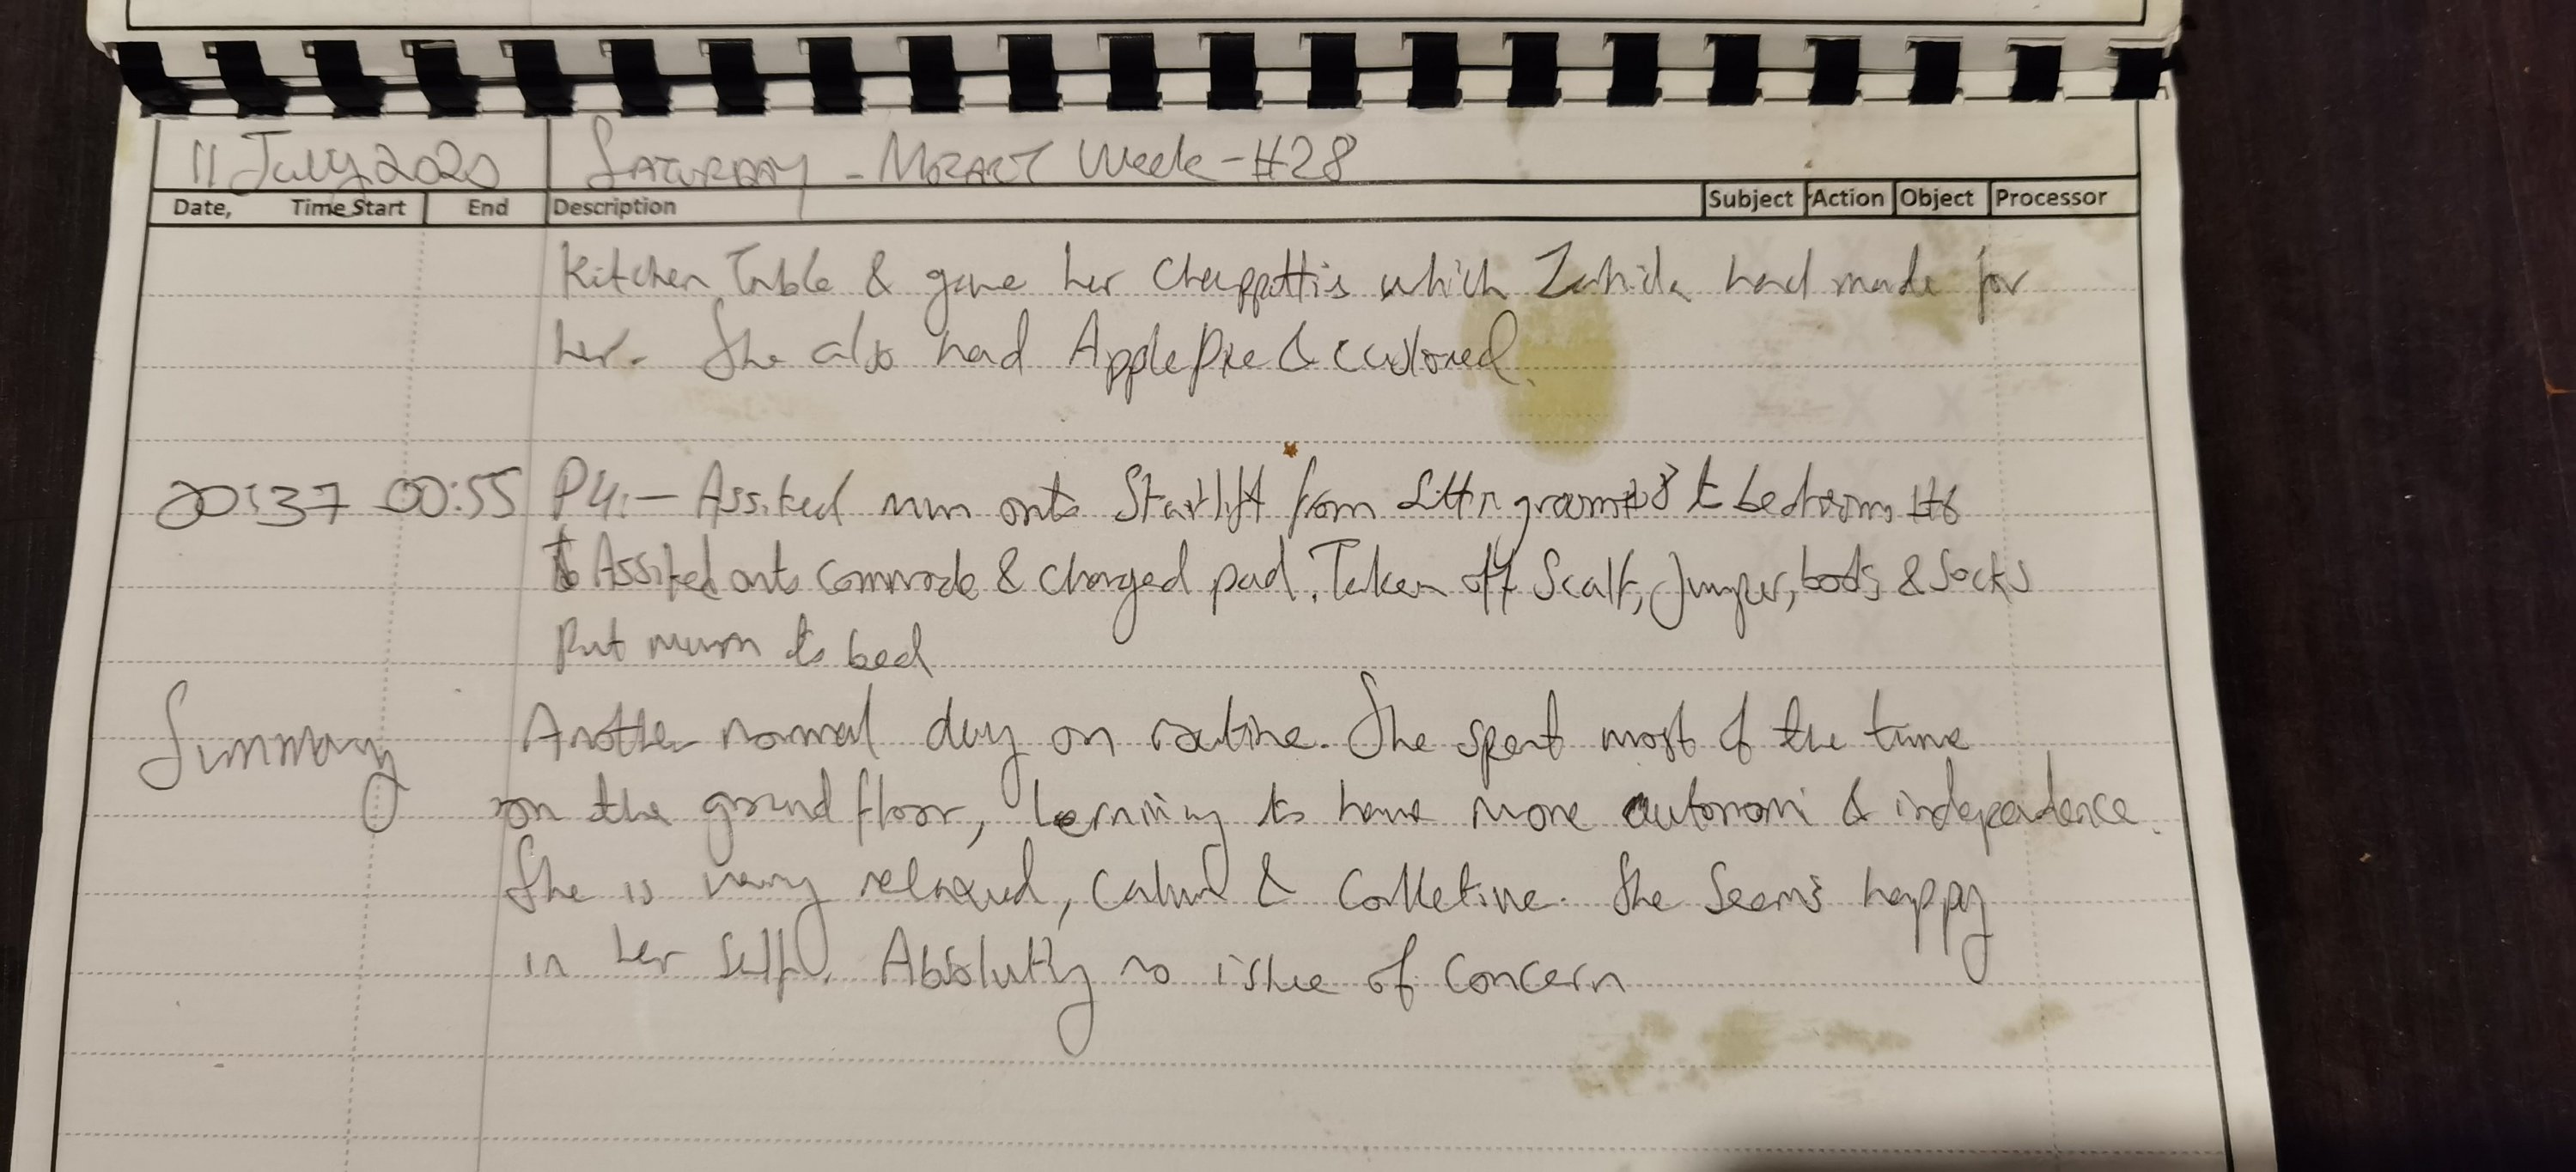 11 July 2020 SATURDAY - MOZART Week - #28
Date, Time Start End Description Subject Action Object Processor
Kitchen Table & gave her Chappattis which Zahida had made for
her. She also had Apple Pie & custored.
20:37 00:55 P4:- Assited mum onto Starlift from Sittingroom #8 to bedroom #6
to Assited onto Commode & changed pad. Taken off Scalf, Jumper, bods & Socks
Put mum to bed
Summary Another normal day on routine. She spent most of the time
on the ground floor, lerning to have more autonomi & independence.
She is very relaxed, Calm & Colletive. She Seems happy
in her self. Absolutly no ishue of Concern